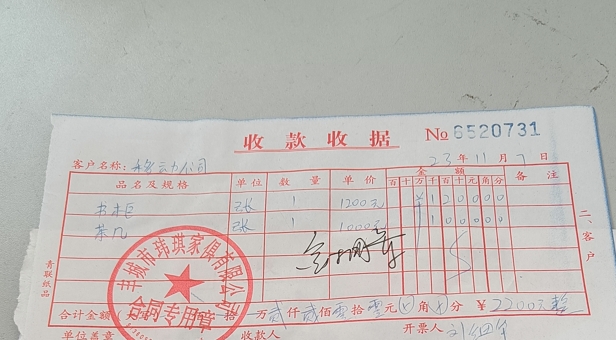 收款收据 № 6520731
23年11月7日
客户名称：移动公司
品名及规格 单位 数量 单价 金额 备注
百十万千百十元角分
书柜 张 1 1200元 ¥120000
茶几 张 1 1000元 100000
丰城市玮琪家俱有限公司
合同专用章
二、客户
青联纸品
合计金额 拾 万 贰仟贰佰零拾零元 角 分 ¥2200元整
单位盖章 收款人 开票人